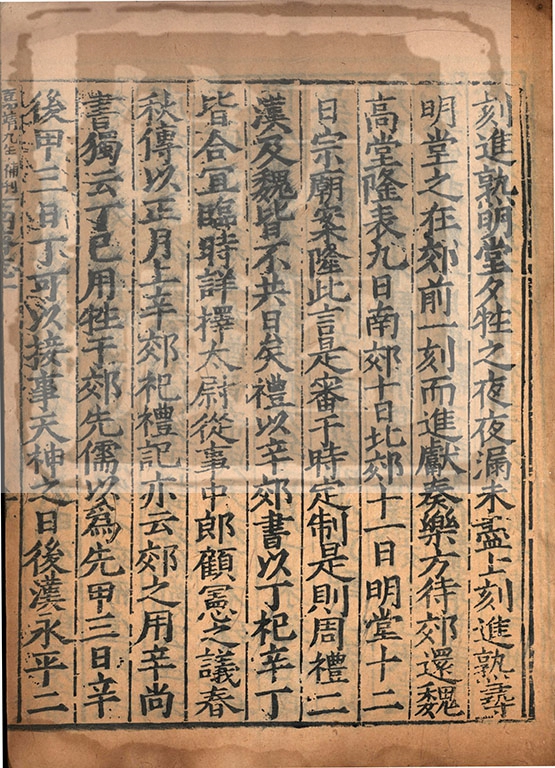 刻進熟明堂夕牲之夜夜漏未盡上刻進熟尋
明堂之在郊前一刻而進獻奏樂方待郊還魏
高堂隆表九日南郊十日北郊十一日明堂十二
日宗廟案隆此言是審于時定制是則周禮二
漢及魏皆不共日矣禮以辛郊書以丁祀辛丁
皆合宜臨時詳擇太尉從事中郎顧憲之議春
秋傳以正月上辛郊祀禮記亦云郊之用辛尚
書獨云丁巳用牲于郊先儒以為先甲三日辛
後甲三日丁可以接事天神之日後漢永平二